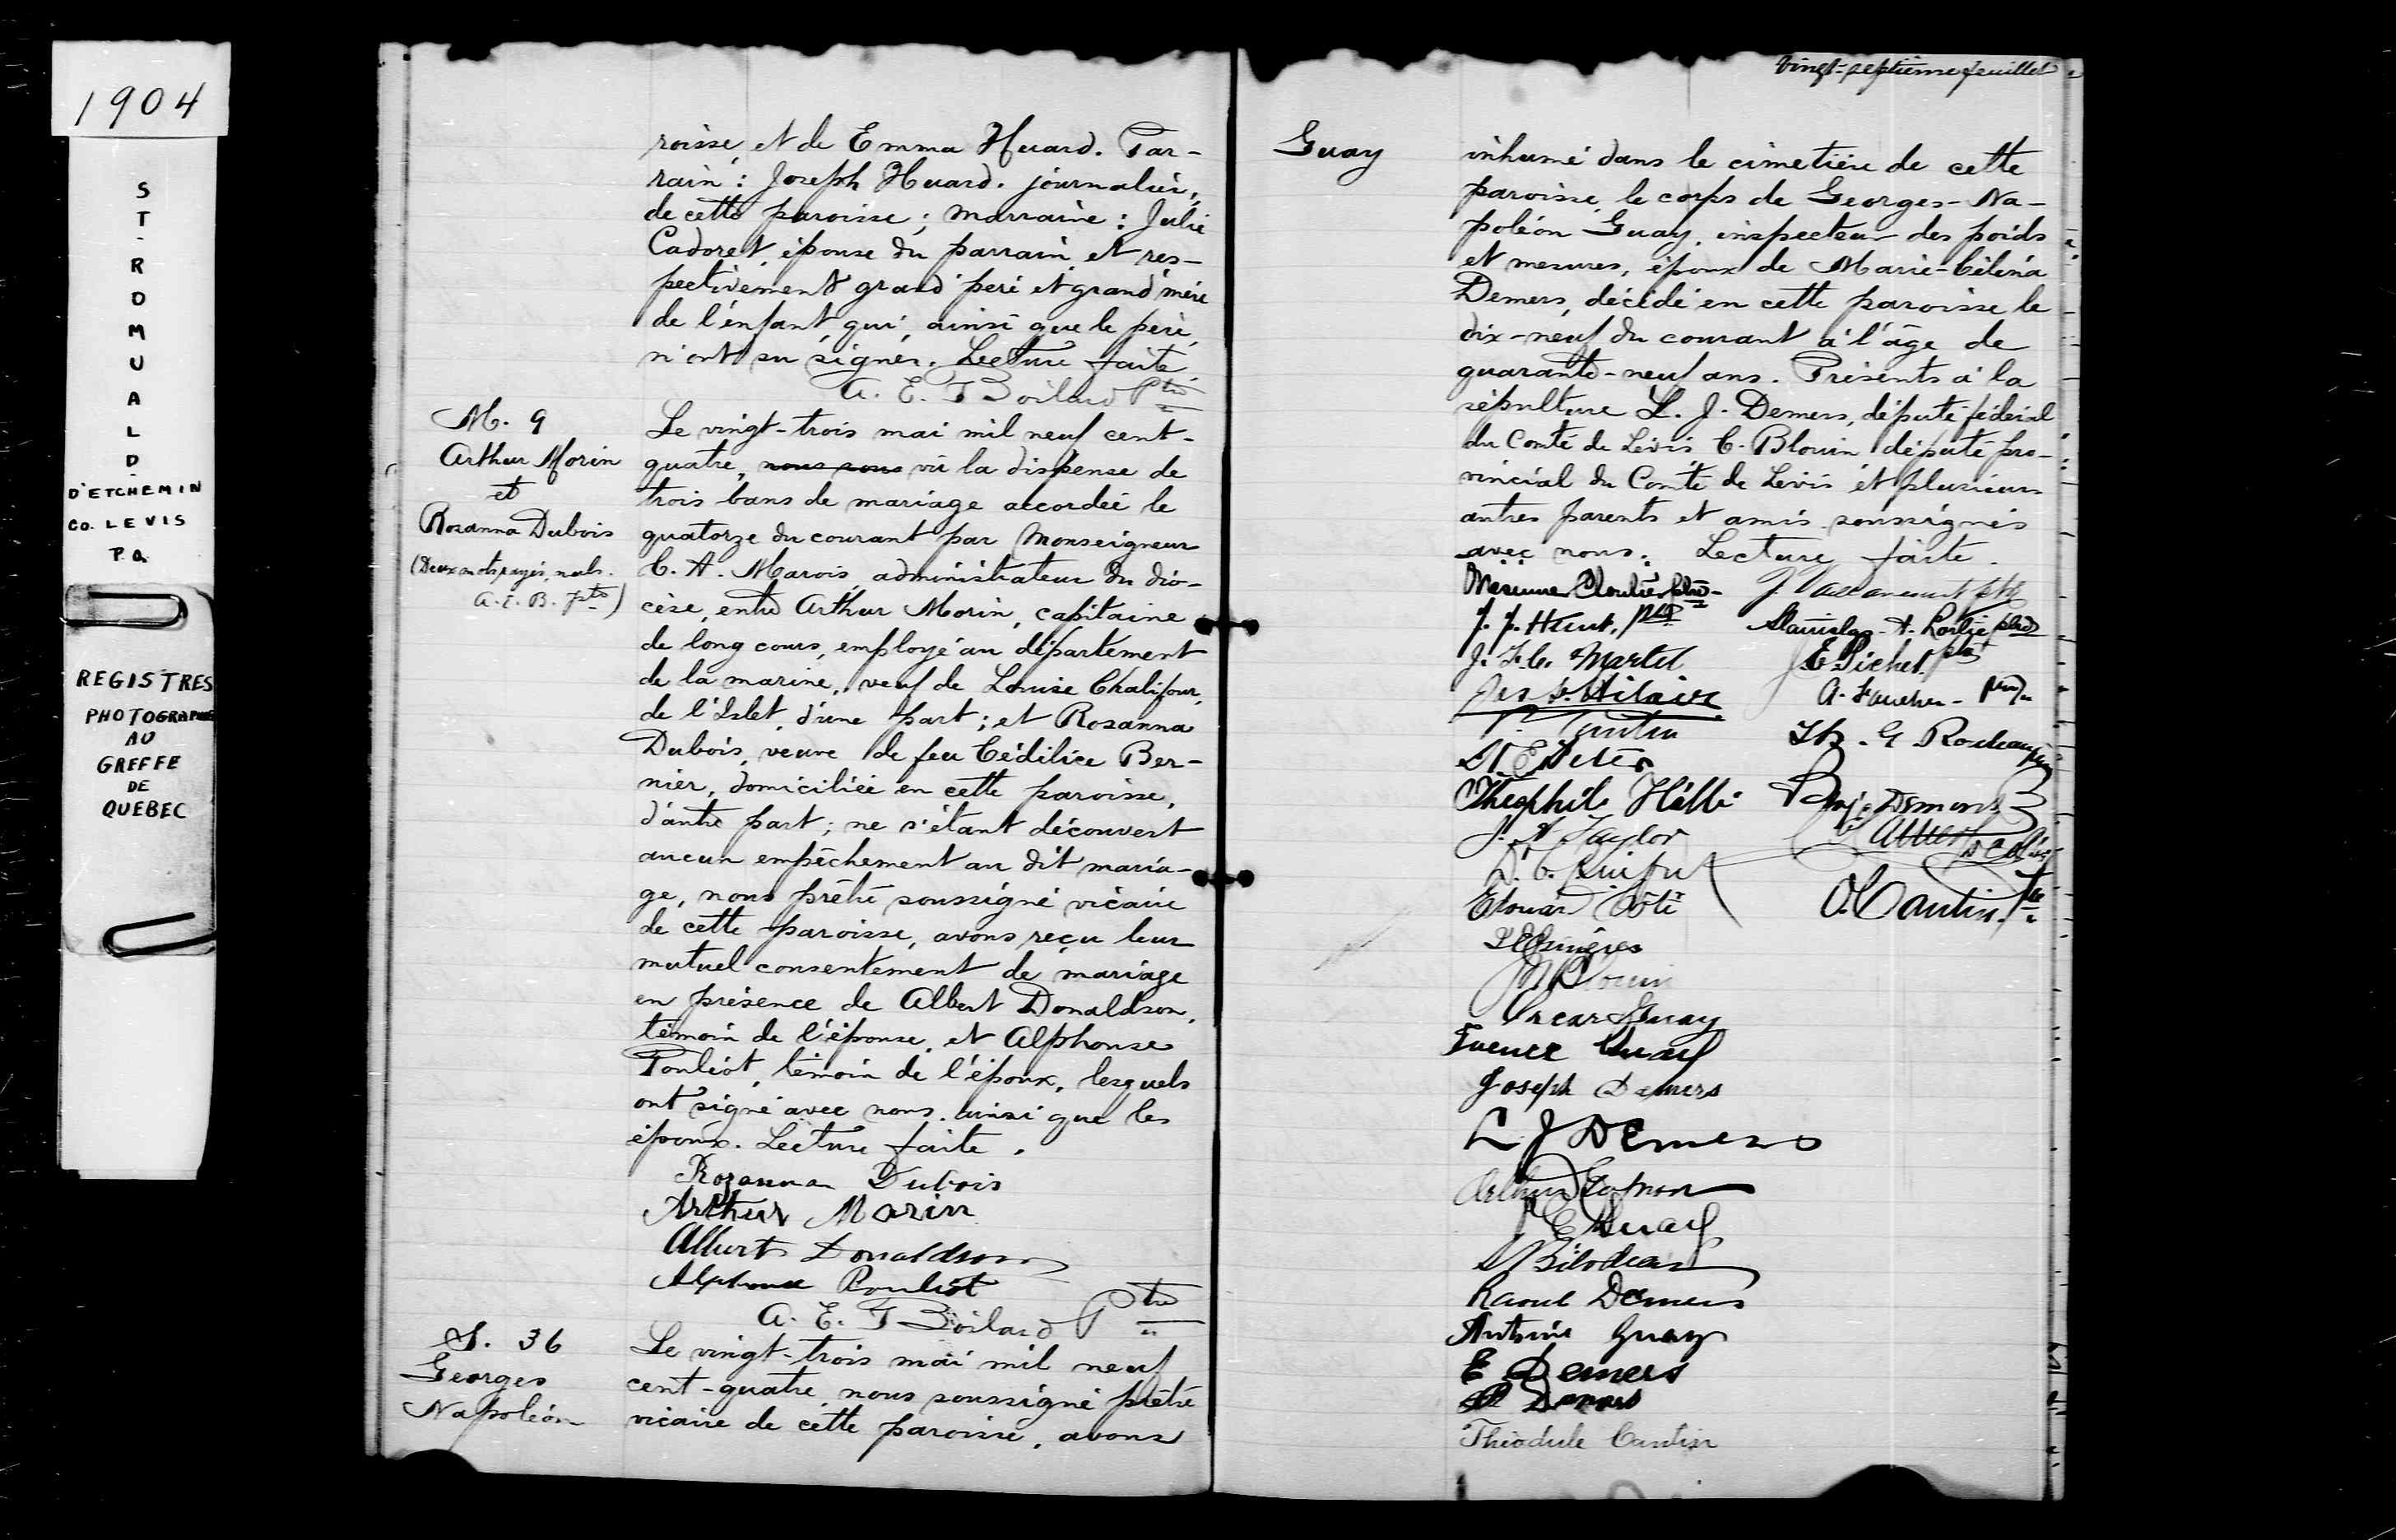 1904
ST-ROMUALD-
D'ETCHEMIN
CO. LEVIS
P.Q.
REGISTRES
PHOTOGRAPHIÉS
AU
GREFFE
DE
QUEBEC
roisse, et de Emma Huard. Par-
rain : Joseph Huard. journalier,
de cette paroisse ; marraine : Julie
Cadoret, épouse du parrain, et res-
pectivement grand'père et grand'mère
de l'enfant, qui, ainsi que le père,
n'ont su signer. Lecture faite.
A. E. T Boilard Ptre
M. 9
Arthur Morin
et
Rosanna Dubois
(Deux mots rayés, nuls.
A. E. B. Ptre)
Le vingt-trois mai mil neuf cent-
quatre, nous sous vu la dispense de
trois bans de mariage accordée le
quatorze du courant par Monseigneur
C. A. Marois, administrateur du dio-
cèse, entre Arthur Morin, capitaine
de long cours, employé au département
de la marine, veuf de Louise Chalifour,
de l'Islet, d'une part ; et Rosanna
Dubois, veuve de feu Cédilice Ber-
nier, domiciliée en cette paroisse,
d'autre part ; ne s'étant découvert
aucun empêchement au dit maria-
ge, nous prêtre soussigné vicaire
de cette paroisse, avons reçu leur
mutuel consentement de mariage
en présence de Albert Donaldson,
témoin de l'épouse, et Alphonse
Pouliot, témoin de l'époux, lesquels
ont signé avec nous. ainsi que les
époux. Lecture faite.
Rozanna Dubois
Arthur Morin
Albert Donaldson
Alphonse Pouliot
A. E. T Boilard Ptre
S. 36
Georges
Napoléon
Le vingt-trois mai mil neuf
cent-quatre, nous soussigné prêtre
vicaire de cette paroisse, avons
vingt-septième feuillet
Guay
inhumé dans le cimetière de cette
paroisse, le corps de Georges-Na-
poléon Guay, inspecteur des poids
et mesures, époux de Marie-Célina
Demers, décédé en cette paroisse le
dix-neuf du courant à l'âge de
quarante-neuf ans. Présents à la
sépulture L. J. Demers, député fédéral
du Comté de Lévis, C. Blouin député pro-
vincial du Comté de Lévis et plusieurs
autres parents et amis soussignés
avec nous. Lecture faite.
Cloutier ptre
J. ptre
J. J. Hunt, ptre
Stanislas-A. Lortie ptre
J. F. C. Martel
E Pichet ptre
Jos St. Hilaire
A. Faucher - ptre
P. Cantin
Th. G. Rouleau ptre
Théophile Hallé
Benj. Demers
J. A. Taylor
Edouard Côté
O. Cantin, Ptre
M Blouin
Oscar Guay
Eugene Guay
Joseph Demers
L J Demers
Arthur
J E Guay
Bilodeau
Raoul Demers
Antoine Guay
E Demers
Demers
Théodule Cantin